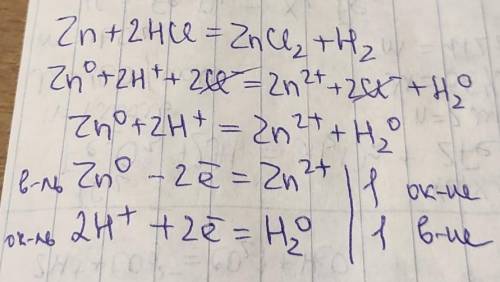 Zn + 2HCl = ZnCl₂ + H₂
Zn⁰ + 2H⁺ + 2Cl⁻ = Zn²⁺ + 2Cl⁻ + H₂⁰
Zn⁰ + 2H⁺ = Zn²⁺ + H₂⁰
в-ль Zn⁰ − 2ē = Zn²⁺ | 1 ок-ие
ок-ль 2H⁺ + 2ē = H₂⁰ | 1 в-ие